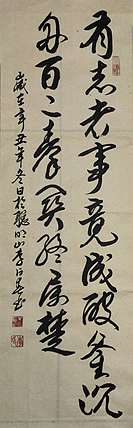 有志者事竟成破釜沉
舟百二秦关终属楚
岁在辛丑年冬日於聪明山李